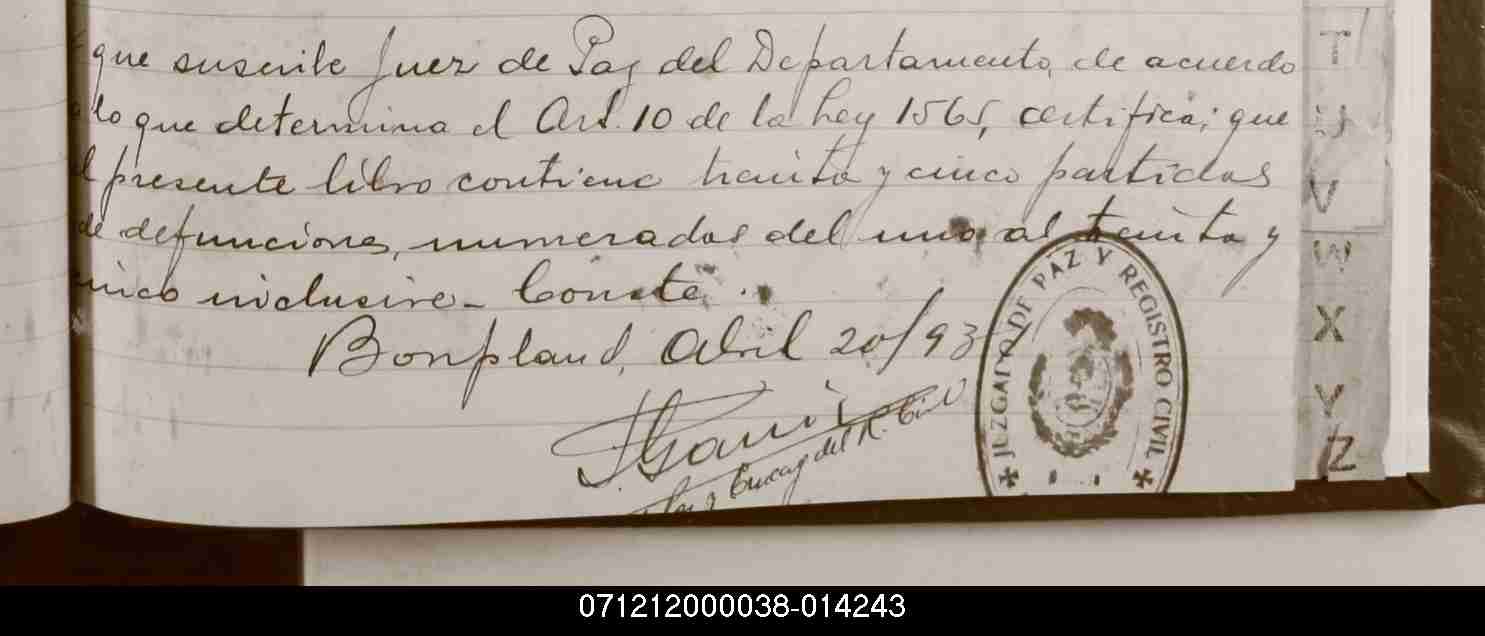 que suscribe Juez de Paz del Departamento, de acuerdo
a lo que determina el Art. 10 de la Ley 1565, certifica; que
el presente libro contiene treinta y cinco partidas
de defunciones, numeradas del uno al treinta y
cinco inclusive - Conste.
Bonpland, Abril 20/93
Juez y Encag del R. Civil
JUZGADO DE PAZ Y REGISTRO CIVIL
T
U
V
W
X
Y
Z
071212000038-014243